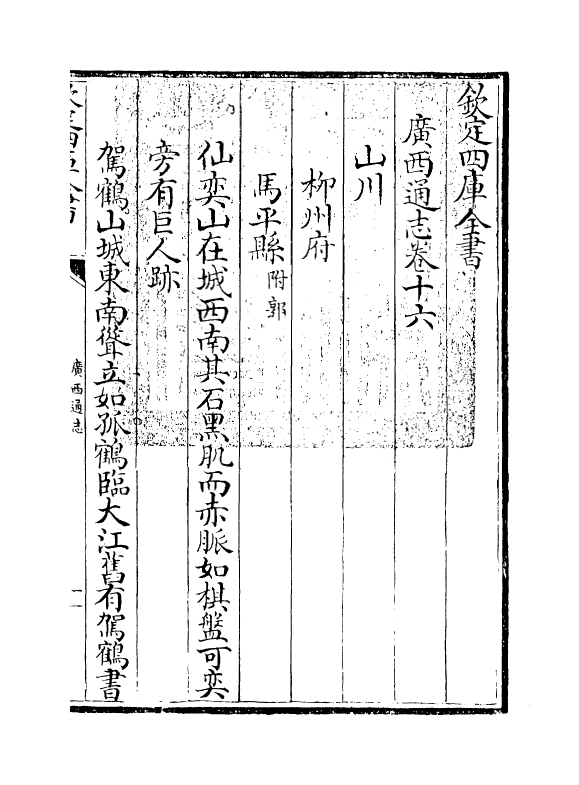 欽定四庫全書
廣西通志卷十六
山川
柳州府
馬平縣附郭
仙奕山在城西南其石黑肌而赤脈如棋盤可奕
旁有巨人跡
駕鶴山城東南聳立如孤鶴臨大江舊有駕鶴書
欽定四庫全書
廣西通志
一